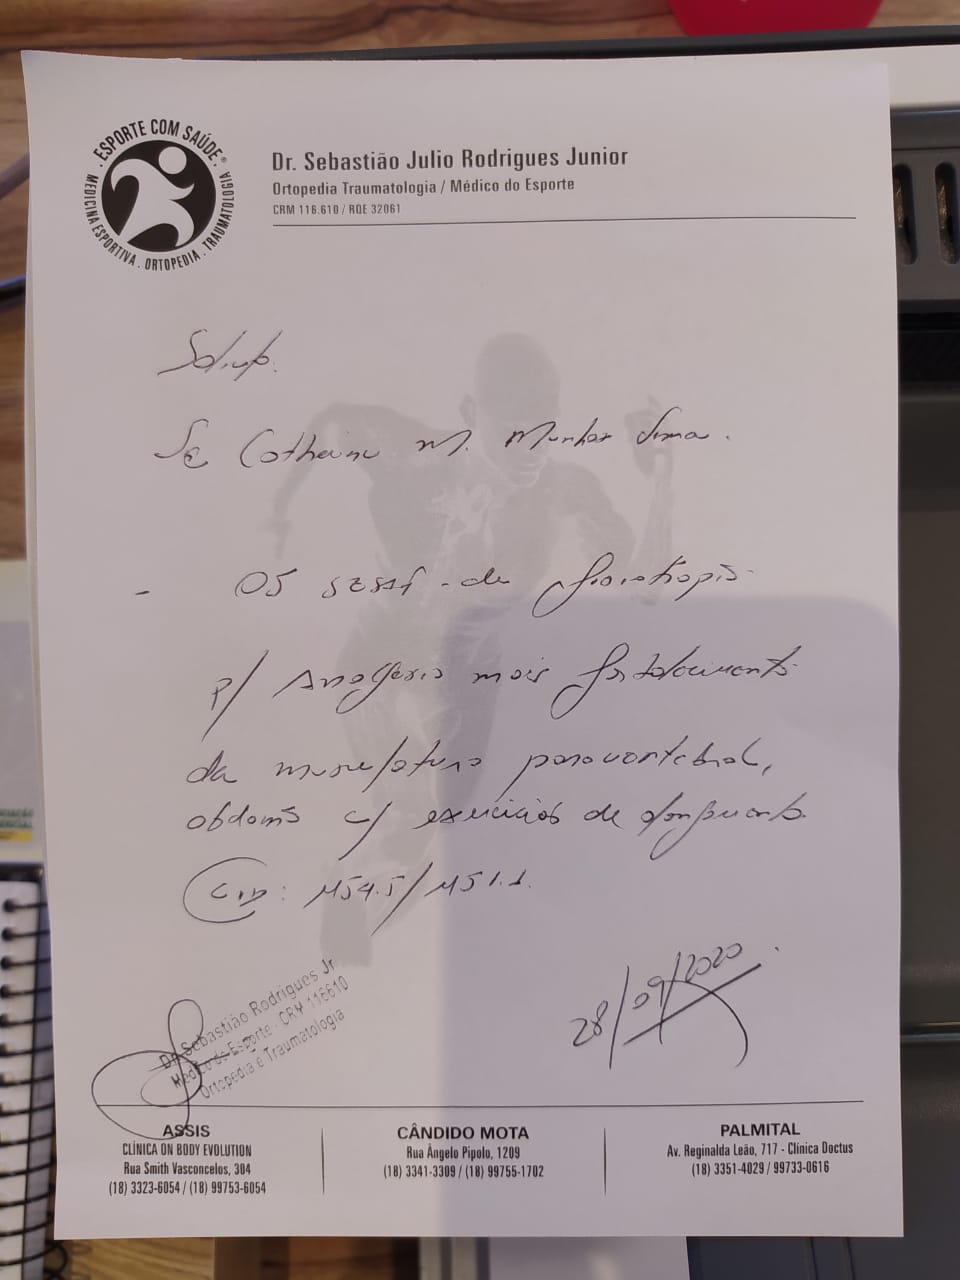 ESPORTE COM SAÚDE
MEDICINA ESPORTIVA . ORTOPEDIA . TRAUMATOLOGIA
Dr. Sebastião Julio Rodrigues Junior
Ortopedia Traumatologia / Médico do Esporte
CRM 116.610 / RQE 32061
M.
- 05 de fisioterapia
p/ Analgesia mais fortalecimento
da musculatura paravertebral,
c/ exercicios de
CID: M54.5/M51.1.
28/09/2020
Dr. Sebastião Rodrigues Jr
Médico do Esporte - CRM 116610
Ortopedia e Traumatologia
ASSIS
CLÍNICA ON BODY EVOLUTION
Rua Smith Vasconcelos, 304
(18) 3323-6054 / (18) 99753-6054
CÂNDIDO MOTA
Rua Ângelo Pipolo, 1209
(18) 3341-3309 / (18) 99755-1702
PALMITAL
Av. Reginalda Leão, 717 - Clínica Doctus
(18) 3351-4029 / 99733-0616